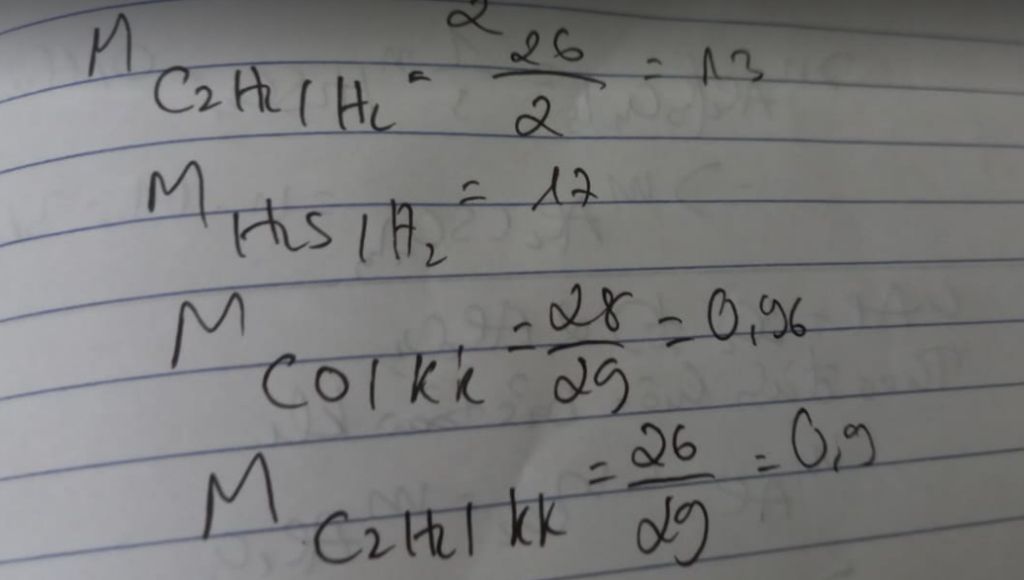 2
M C2H2/H2 = 26/2 = 13
M H2S/H2 = 17
M CO/kk = 28/29 = 0,96
M C2H2/kk = 26/29 = 0,9